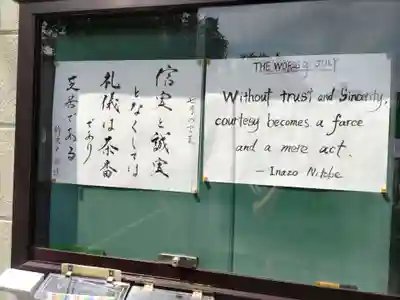 七月のことば
信実と誠実
となくしては
礼儀は茶番
であり
芝居である
THE WORDS of JULY
Without trust and Sincerity,
courtesy becomes a farce
and a mere act.
— Inazo Nitobe